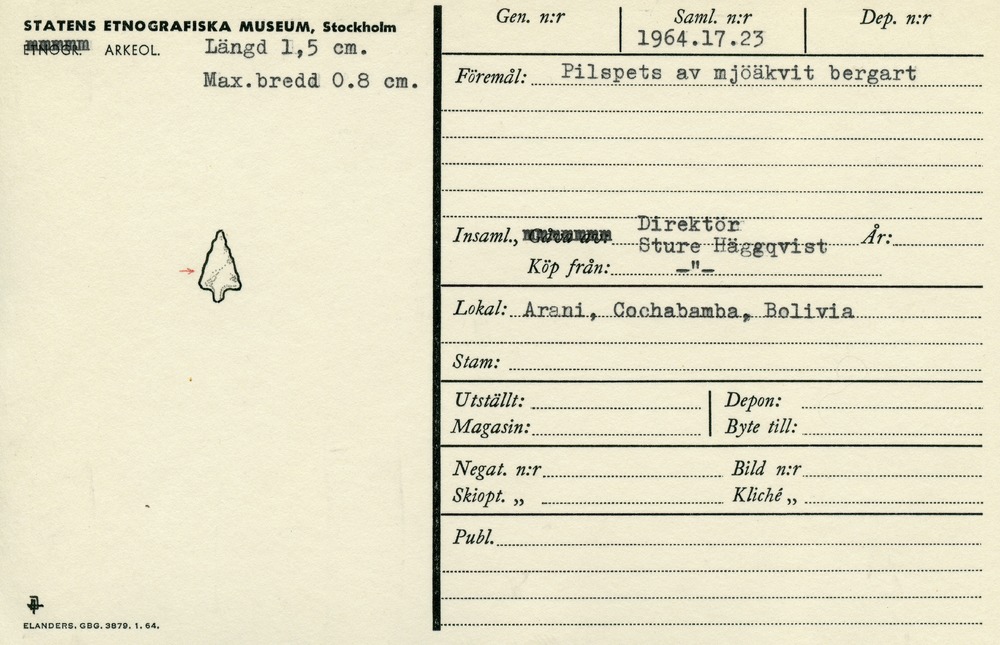 STATENS ETNOGRAFISKA MUSEUM, Stockholm
ETNOGR. ARKEOL.
Längd 1,5 cm.
Max.bredd 0.8 cm.
Gen. n:r
Saml. n:r
1964.17.23
Dep. n:r
Föremål: Pilspets av mjöäkvit bergart
Insaml., Direktör
Sture Häggqvist
År:
Köp från: -"-
Lokal: Arani, Cochabamba, Bolivia
Stam:
Utställt:
Depon:
Magasin:
Byte till:
Negat. n:r
Bild n:r
Skiopt. „
Kliché „
Publ.
ELANDERS. GBG. 3879. 1. 64.